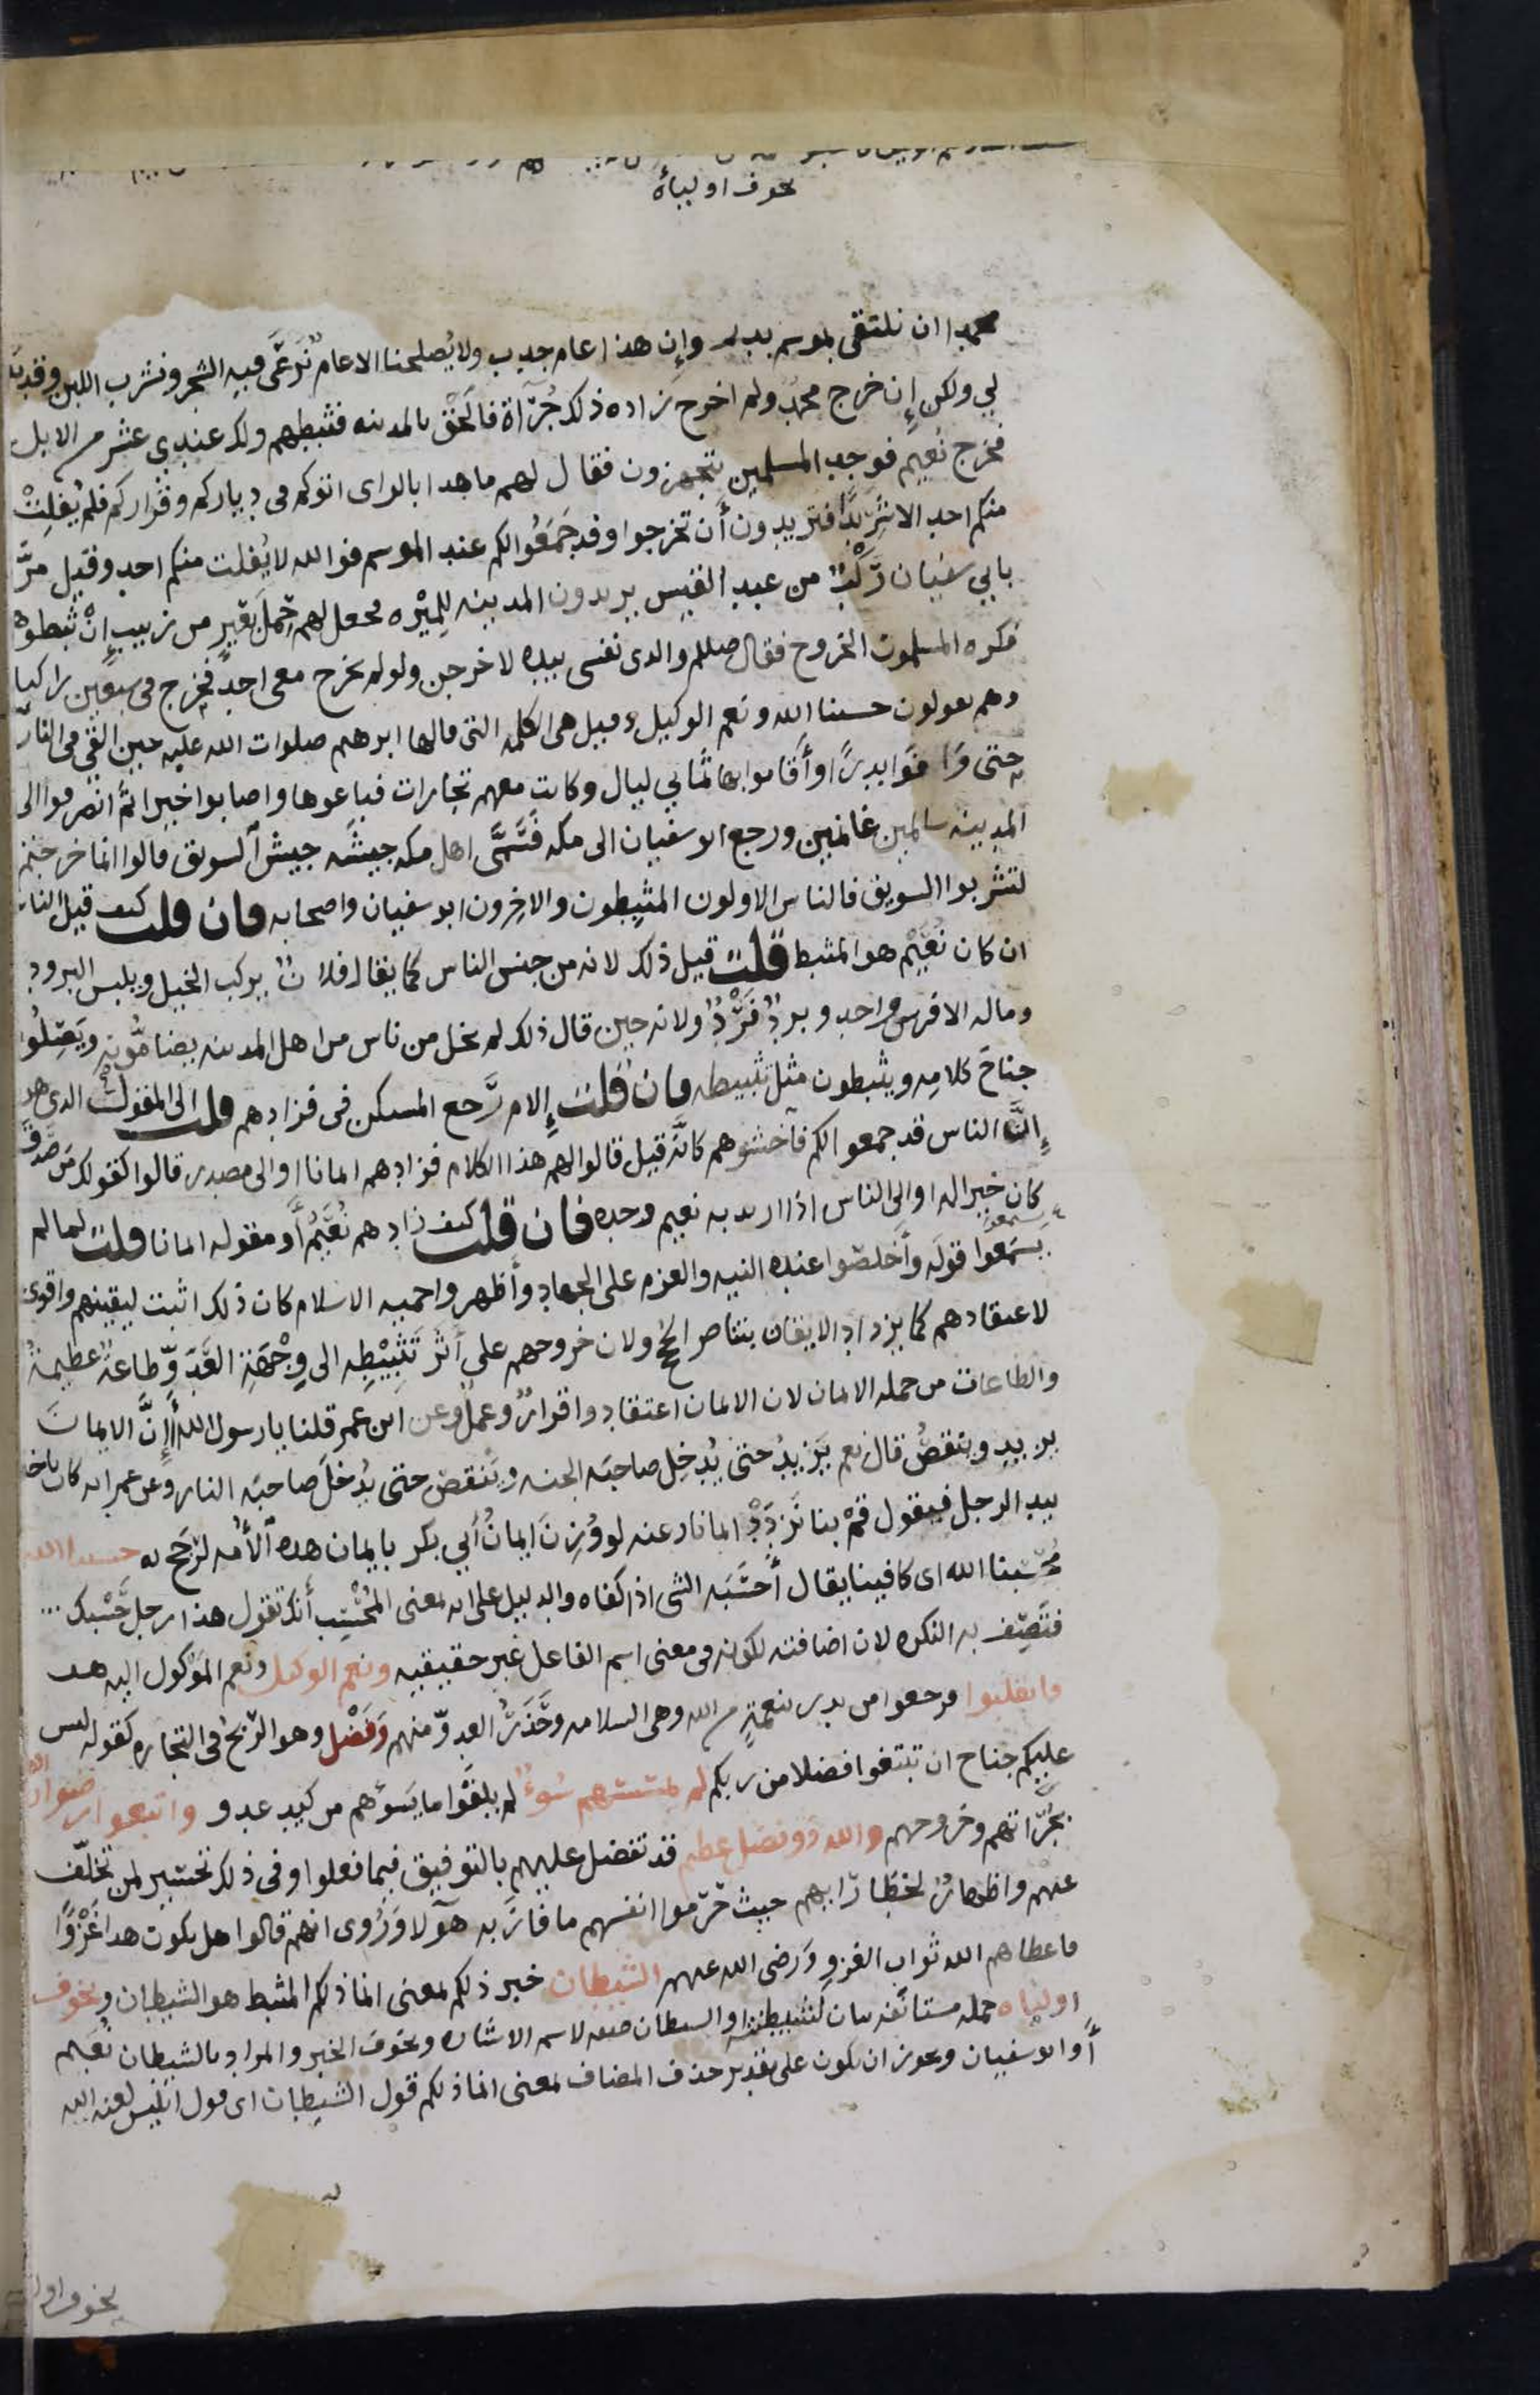 يخوف اولياءه
محمدا ان نلتقى بموسم بدر وإن هذا عام جدب ولا يُصلحنا الا عام نَرعَى فيه الشجر ونشرب اللبن وقد بدا
لي ولكن إن خرج محمد ولم اخرج زاده ذلك جُرْآة فالحَقْ بالمدينه فثبطهم ولك عندي عشر من الابل
فخرج نُعيم فوجد المسلمين يتجهزون فقال لهم ما هذا بالراى اتوكم فى دياركم وقراركم فلم يُفلِتْ
منكم احد الا شَرِيدًا فتريدون أن تخرجوا وقد جَمَعُوا لكم عند الموسم فوالله لا يُفلت منكم احد وقيل مرّ
بابي سفيان رَكْبٌ من عبد القيس يريدون المدينه لِلمِيْره فجعل لهم حِمْلَ بعَيرٍ من زبيب إنْ ثبطوهم
فكره المسلمون الخروج فقال صللم والذى نفسى بيده لاخرجن ولو لم يخرج معى احد فخرج فى سبعين راكبا
وهم يقولون حسبنا الله ونعم الوكيل وقيل هى الكلمه التى قالها ابرهيم صلوات الله عليه حين القى فى النار
حتى وَافَوا بدرًا وأَقاموا بها ثمانى ليال وكانت معهم تجارات فباعوها واصابوا خيرا ثم انصرفوا الى
المدينه سالمين غانمين ورجع ابو سفيان الى مكه فَسَمَّى اهل مكه جيشَه جيش السويق قالوا انما خرجتم
لتشربوا السويق فالناس الاولون المثبِطون والاخِرون ابو سفيان واصحابه فان قلت كيف قيل الناس
ان كان نُعَيْم هو المثبط قلت قيل ذلك لانه من جنس الناس كما يقال فلانٌ يركب الخيل ويلبس البرود
وماله الا فرس واحد وبردٌ فَرْدٌ ولانه حين قال ذلك لم يخل من ناس من اهل المدينه يضامُّونه ويَصِلُون
جناحَ كلامِه ويثبطون مثل تثبيطه فان قلت إلام رَجع المستكن فى فزادهم قلت الى المقول الذى هو
إنَّ الناس قد جمعوا لكم فاخشوهم كانه قيل قالوا لهم هذا الكلام فزادهم ايمانا او الى مصدر قالوا كقولك مَن صدَق
كان خيرا له او الى الناس اذا اريد به نعيم وحده فان قلت كيف زادهم نُعَيْمٌ أو مقوله ايمانا قلت لما لم
يسمَعُوا قولَه وأَخلصوا عنده النيه والعزم على الجهاد وأَظهروا حميه الاسلام كان ذلك اثبت ليقينهم واقوى
لاعتقادهم كما يزداد الايقان بتناصر الحج ولان خروجهم على أثَر تَثْبِيْطِه الى وِجْهَةِ العَدوّ طاعةٌ عظيمةٌ
والطاعات من جمله الايمان لان الايمان اعتقاد واقرارٌ وعملٌ وعن ابن عمر قلنا يا رسول الله إنَّ الايمانَ
يزيد وينقصُ قال نعم يَزيدُ حتى يُدخِل صاحبَه الجنه ويَنْقصُ حتى يُدخلَ صاحبَه النار وعن عمر انه كان ياخذ
بيد الرجل فيقول قمْ بنا نَزدَدْ ايمانا وعنه لو وُزِنَ ايمانُ أبي بكر بايمان هذه الأُمه لرَجَح به حسبنا الله
مُحْسِبنا الله اى كافينا يقال أَحْسَبَه الشى اذا كفاه والدليل على انه بمعنى المُحْسِب أنك تقول هذا رجل حَسْبك
فتَصِف به النكره لان اضافته لكونه فى معنى اسم الفاعل غير حقيقيه ونعم الوكيل ونعم المَوْكول اليه هو
فانقلبوا فرجعوا من بدر بنعمةٍ من الله وهى السلامه وحَذَرُ العدوّ منهم وَفَضْل وهو الرّبحُ فى التجاره كقوله ليس
عليكم جناح ان تبتغوا فضلا من ربكم لم يمسسهم سُوءٌ لم يَلقَوا ما يَسُوْهم من كيد عدو واتبعوا رضوان الله
بجُرْاتهم وخروجهم والله ذو فضل عظيم قد تفضل عليهم بالتوفيق فيما فعلوا وفى ذلك تحسير لمن تخلّف
عنهم واظهارٌ لخطَا رَايهم حيث حَرّموا انفسهم ما فازَ به هٓولا ورُوى انهم قالوا هل يكون هذا غَزْوًا
فاعطاهم الله ثواب الغزو ورَضى الله عنهم الشيطان خبر ذلكم بمعنى انما ذلكم المثبط هو الشيطان ويخوف
اولياه جمله مستانفه بيان لتثبيطه او الشيطان صفه لاسم الاشاره ويخوف الخبر والمراد بالشيطان نُعَيم
أو ابو سفيان ويجوز ان يكون على تقدير حذف المضاف بمعنى انما ذلكم قول الشيطان اى قول ابليس لعنه الله